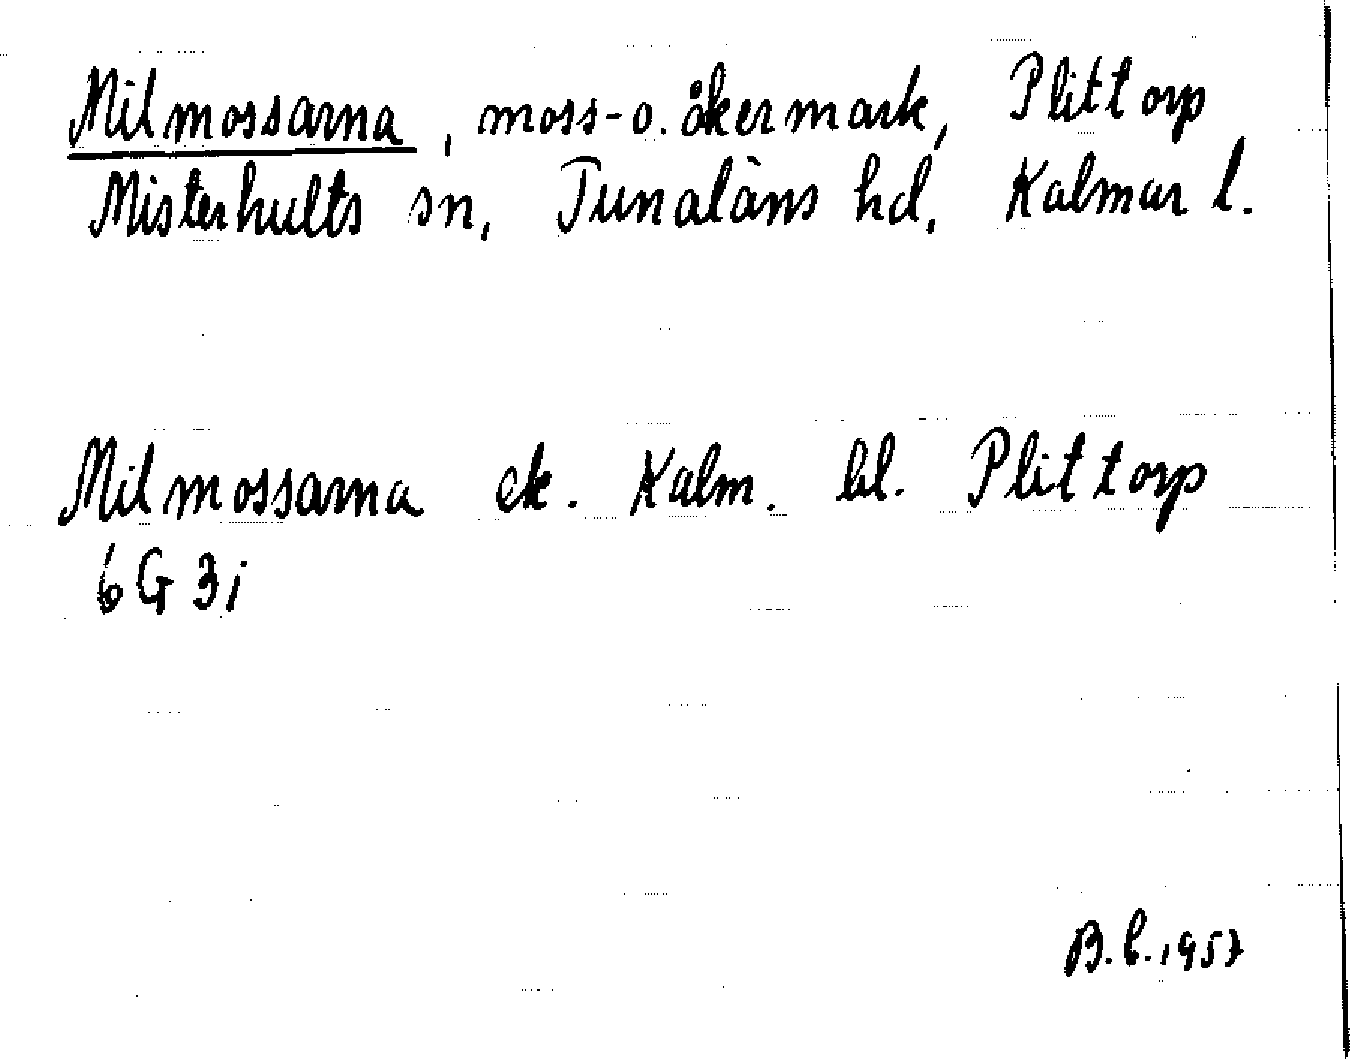 Milmossarna, moss- o. åkermark, Plittorp
Misterhults sn, Tunaläns hd, Kalmar l.
Milmossarna ek. Kalm. bl. Plittorp
6G 3i
B.b. 1957